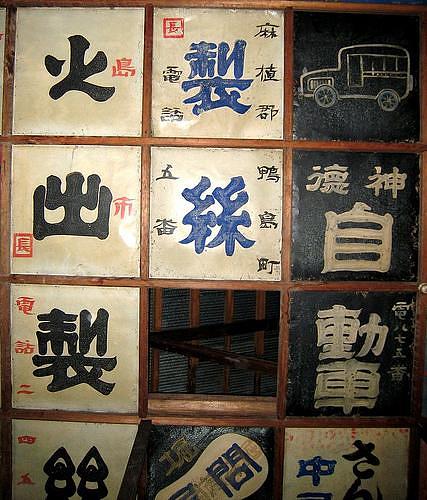 神德
自動車
電八七五番
麻植郡
鴨島町
製絲
長
電話
五番
島市
火出製
長
電話二四五
さん
中
問